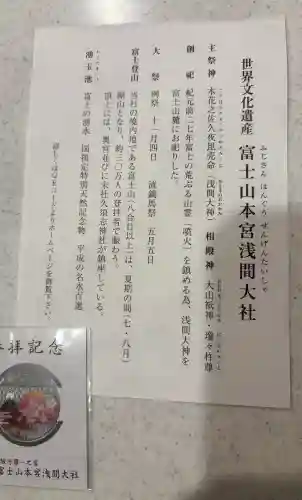 世界文化遺産 富士山本宮浅間大社
ふじさん ほんぐう せんげんたいしゃ
主祭神 木花之佐久夜毘売命(浅間大神) 相殿神 大山祇神・瓊々杵尊
創祀 紀元前二七年富士の荒ぶる山霊(噴火)を鎮める為、浅間大神を
富士山麓にお祀りした。
大祭 例祭 十一月四日 流鏑馬祭 五月五日
富士登山 当社の境内地である富士山(八合目以上)は、夏期の間(七・八月)
開山となり、約三〇万人の登拝者で賑わう。
頂上には、奥宮並びに末社久須志神社が鎮座している。
湧玉池 富士の湧水 国指定特別天然記念物 平成の名水百選
ホームページを御覧下さい。
参拝記念
富士山本宮浅間大社